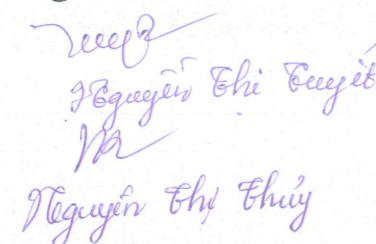 Nguyễn Thị Tuyết
Nguyễn Thị Thủy